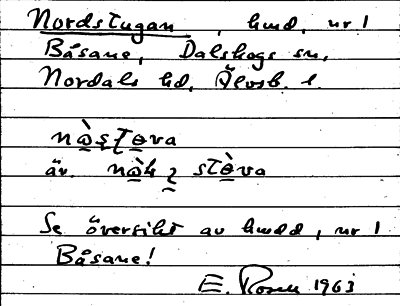 Nordstugan, hmd, nr 1
Båsane, Dalskogs sn,
Nordals hd, Älvsb. l.
nò̱ṣʈɵva
äv. nò̱h ʂtɵ̀va
Se översikt av hmdd, nr 1
Båsane!
E. Rosell 1963